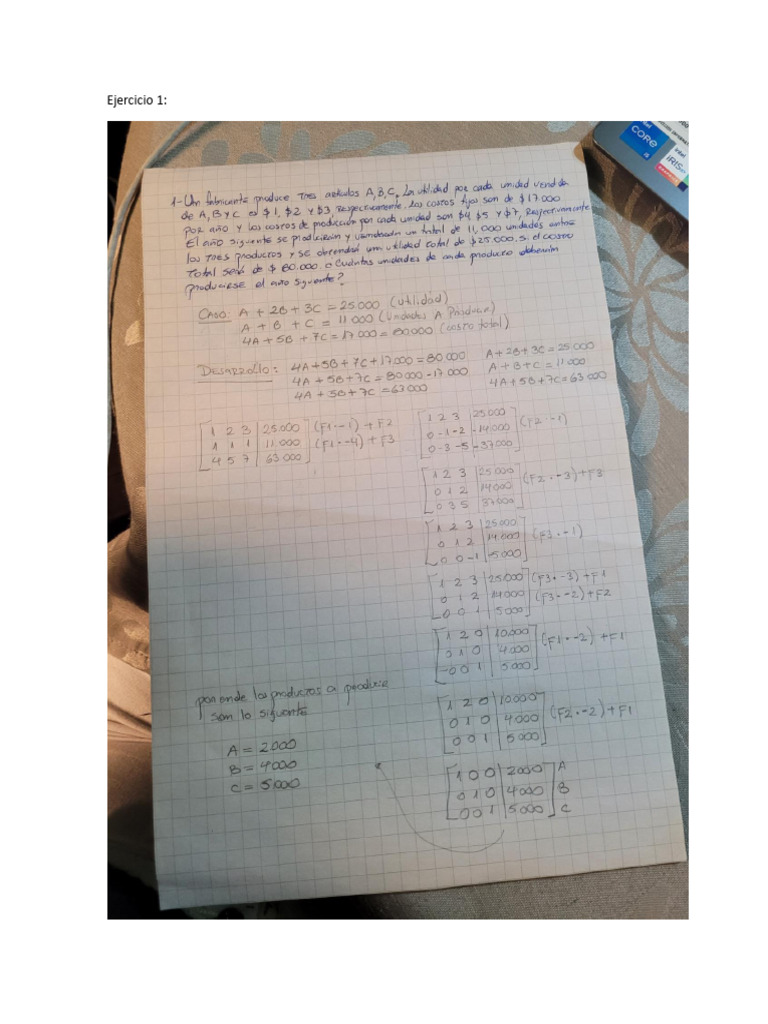 Ejercicio 1:
CORE
i5
intel
iRIS xe
1-Un fabricante produce Tres artículos A,B,C, La utilidad por cada unidad vendida
de A, B y C es $1, $2 y $3, Respectivamente. Los costos fijos son de $17.000
por año y los costos de producción por cada unidad son $4 $5 y $7, Respectivamente
El año siguiente se producirán y venderán un total de 11,000 unidades entre
los Tres productos y se obtendrá una utilidad total de $25.000. Si el costo
Total será de $ 80.000. ¿Cuántas unidades de cada producto deberán
producirse el año siguiente?
CASO: A + 2B + 3C = 25.000 (Utilidad)
A + B + C = 11 000 (Unidades A Producir)
4A + 5B + 7C = 17 000 = 80000 (costo total)
DESARROLLO: 4A+5B+7C+17.000=80000
4A+5B+7C=80000-17000
4A+5B+7C=63000
A+2B+3C=25000
A+B+C=11000
4A+5B+7C=63000
1 2 3 | 25.000 (F1·-1)+F2
1 1 1 | 11.000 (F1·-4)+F3
4 5 7 | 63 000
1 2 3 | 25000
0 -1 -2 | -14000 (F2·-1)
0 -3 -5 | -37000
1 2 3 | 25000
0 1 2 | 14000 (F2·-3)+F3
0 3 5 | 37000
1 2 3 | 25000
0 1 2 | 14.000 (F3·-1)
0 0 -1 | -5000
1 2 3 | 25000 (F3·-3)+F1
0 1 2 | 14000 (F3·-2)+F2
0 0 1 | 5000
1 2 0 | 10.000
0 1 0 | 4000 (F1·-2)+F1
0 0 1 | 5000
1 2 0 | 10000
0 1 0 | 4000 (F2·-2)+F1
0 0 1 | 5000
1 0 0 | 2000 A
0 1 0 | 4000 B
0 0 1 | 5000 C
por ende los productos a producir
son lo siguiente
A = 2000
B = 4000
C = 5000